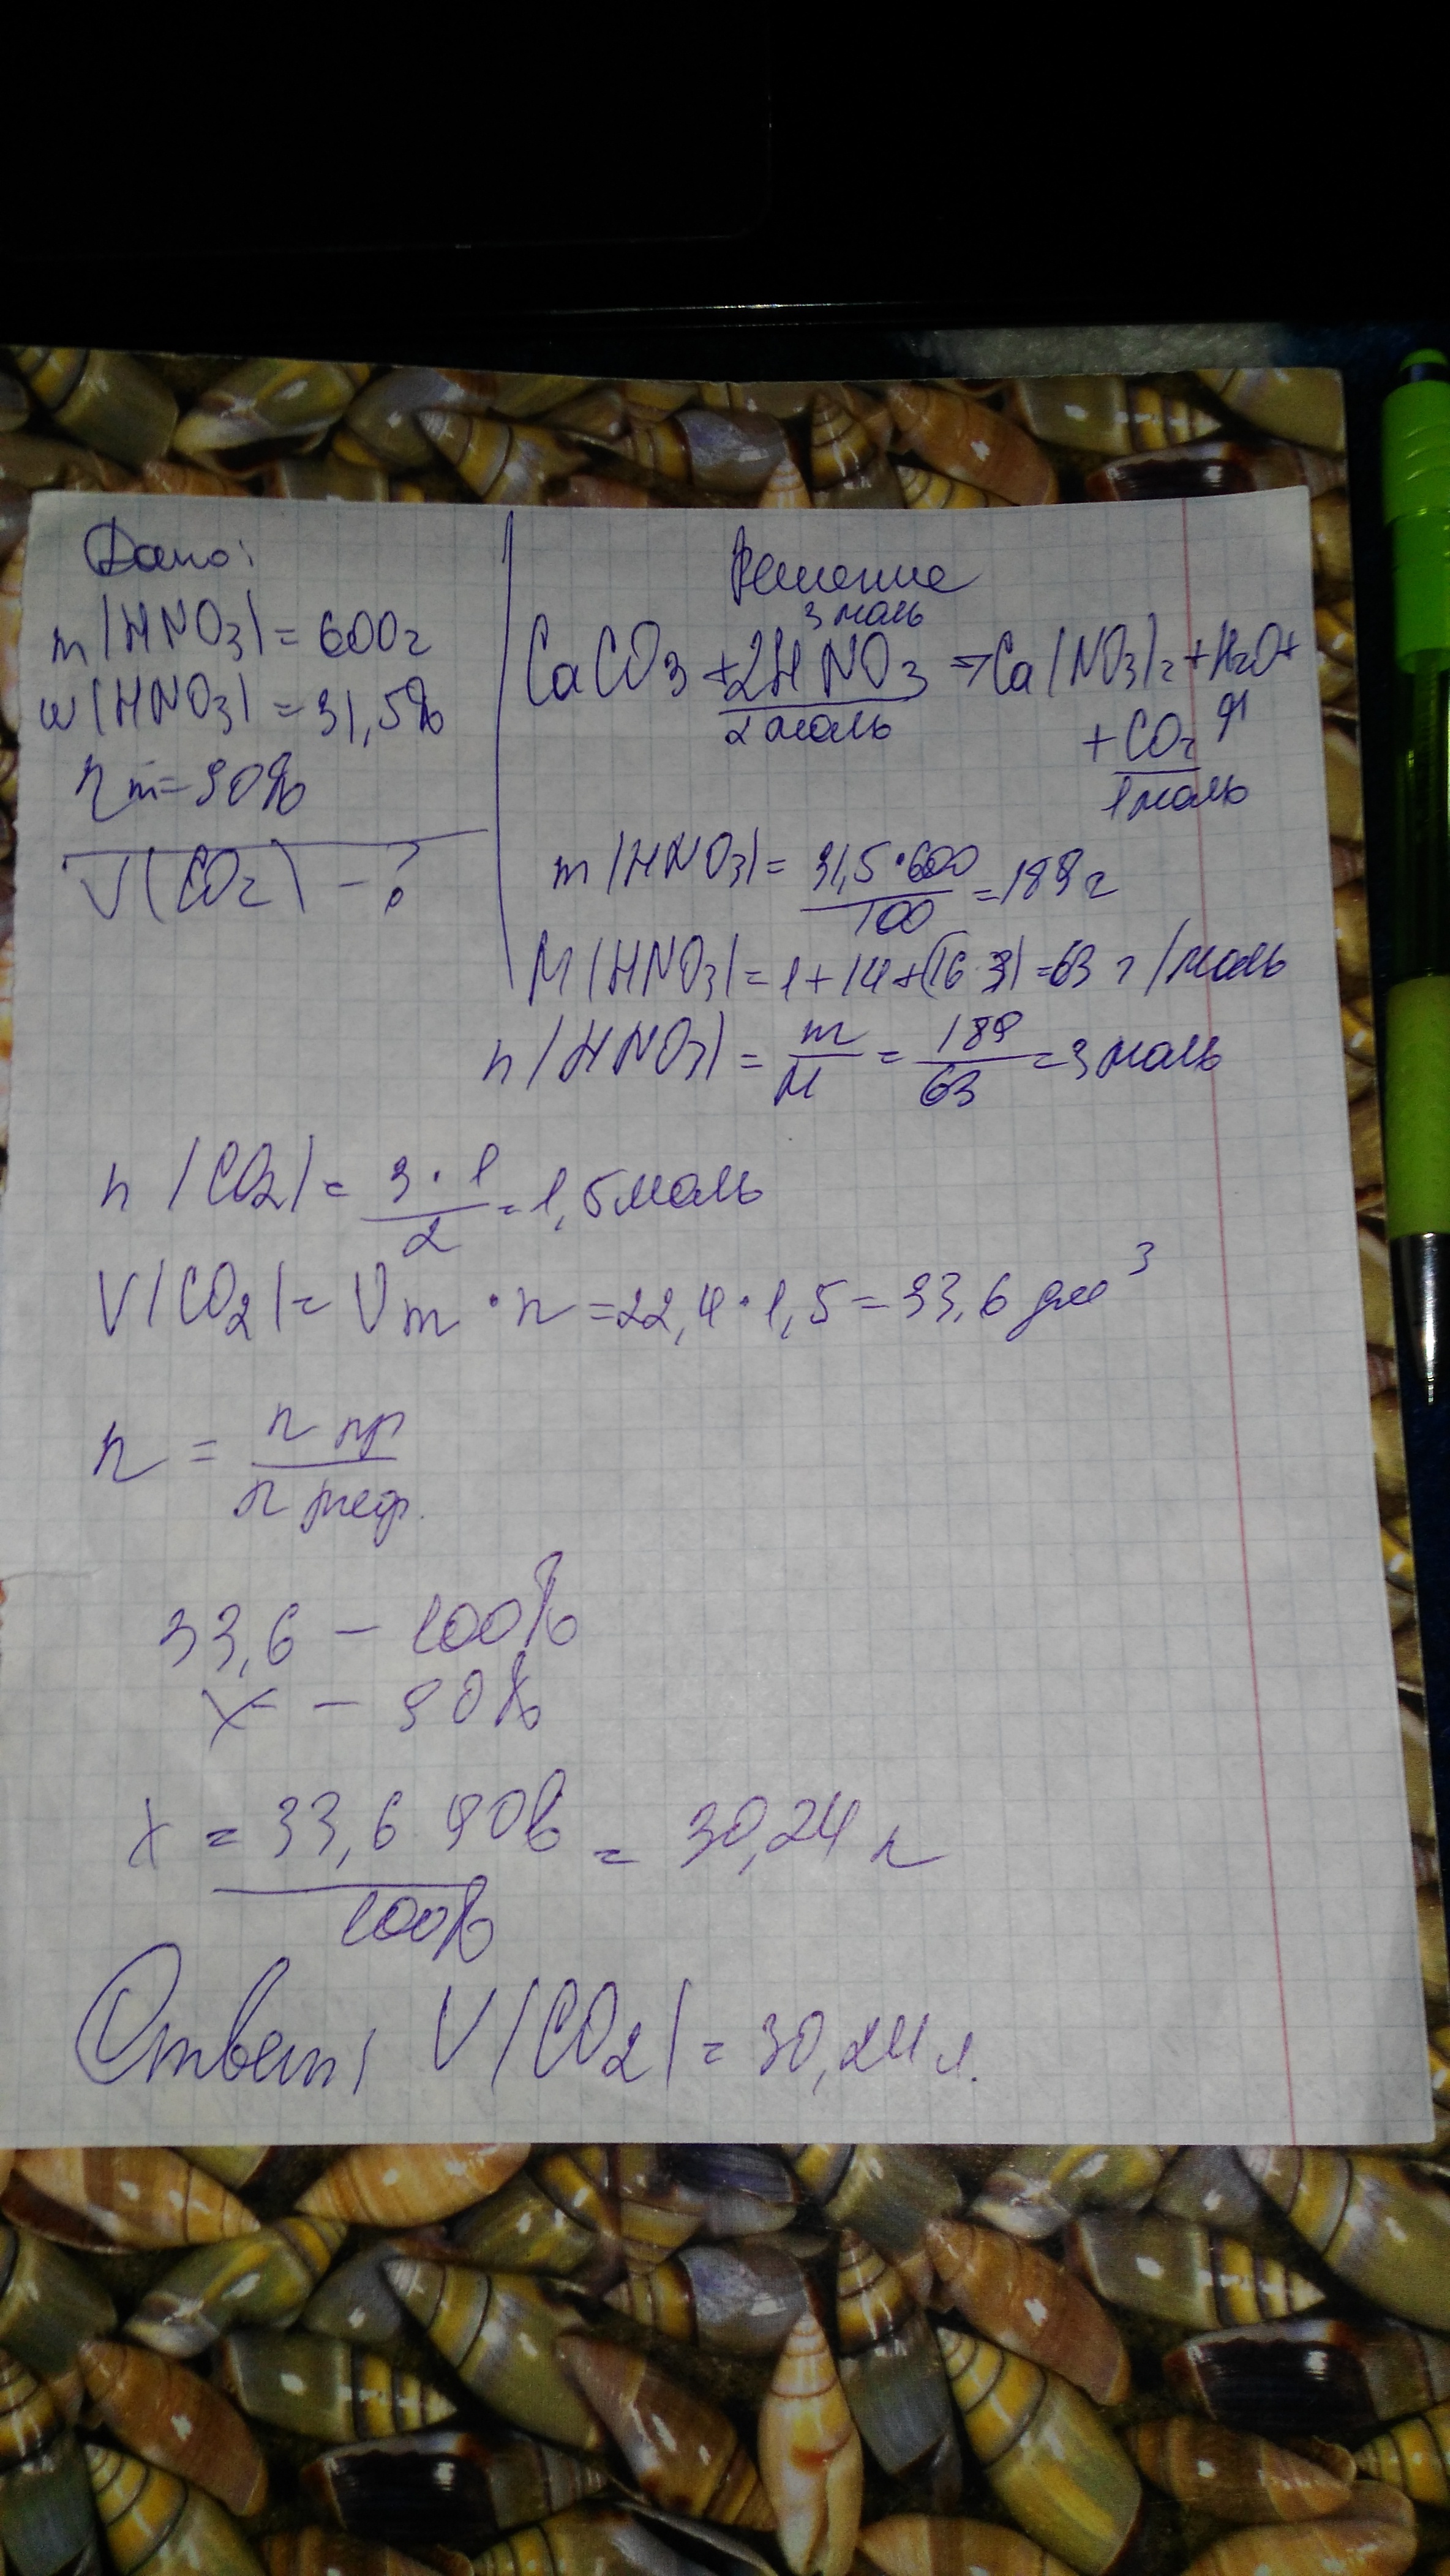 Дано:
m(HNO3) = 600г
w(HNO3) = 31,5%
η m = 90%
V(CO2) - ?
Решение
3 моль
CaCO3 + 2HNO3 => Ca(NO3)2 + H2O +
2 моль
+ CO2 ↑
1 моль
m(HNO3) = 31,5 · 600 / 100 = 189 г
M(HNO3) = 1 + 14 + (16 · 3) = 63 г/моль
n(HNO3) = m / M = 189 / 63 = 3 моль
n(CO2) = 3 · 1 / 2 = 1,5 моль
V(CO2) = Vm · n = 22,4 · 1,5 = 33,6 дм³
η = n пр / n теор.
33,6 - 100%
x - 90%
x = 33,6 90% / 100% = 30,24 л
Ответ: V(CO2) = 30,24 л.